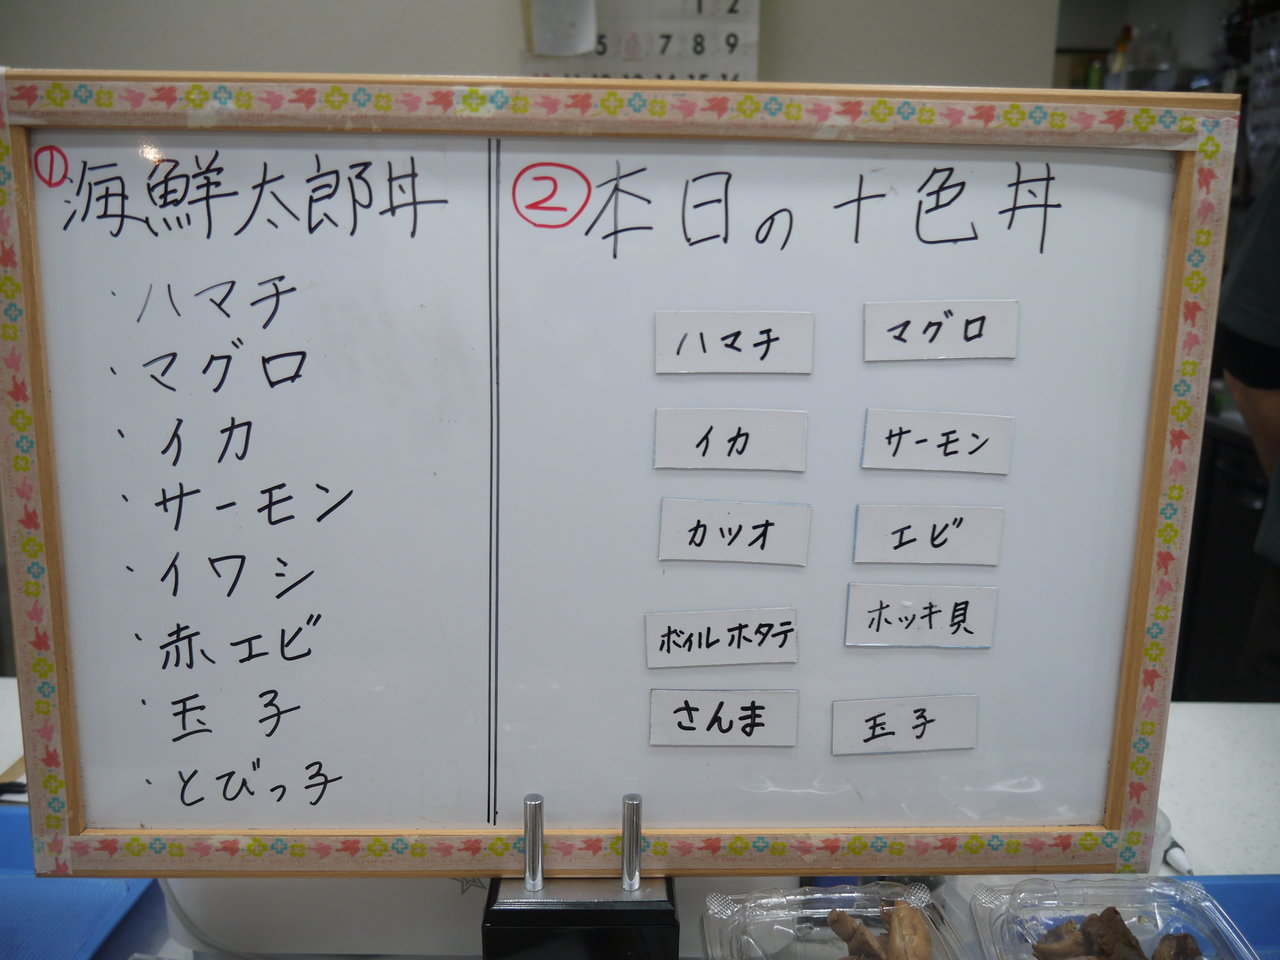 1 2
5 7 8 9
① 海鮮太郎丼
・ハマチ
・マグロ
・イカ
・サーモン
・イワシ
・赤エビ
・玉子
・とびっ子
② 本日の十色丼
ハマチ マグロ
イカ サーモン
カツオ エビ
ボイルホタテ ホッキ貝
さんま 玉子